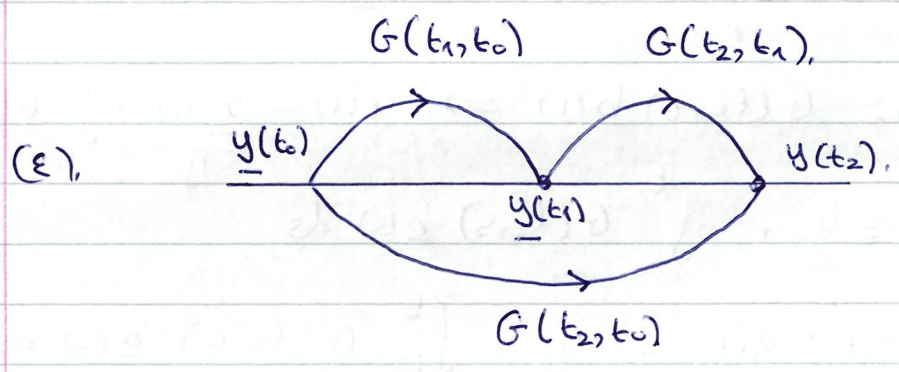 G(t₁,t₀) G(t₂,t₁).
(ε). y(t₀) y(t₂).
y(t₁)
G(t₂,t₀)